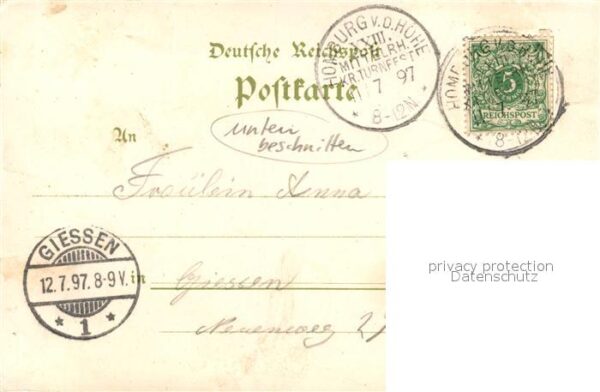 Deutsche Reichspost
Postkarte
HOMBURG V. D. HÖHE
VIII.
MITTELRH.
KR. TURNFEST
7 97
* 8-12N *
5
REICHSPOST
HOMBURG V. D.
* 8-12
An
unten
beschnitten
Fräulein Anna
GIESSEN
12.7.97.8-9V.
* 1 *
in Giessen
Neuenweg 27
privacy protection
Datenschutz